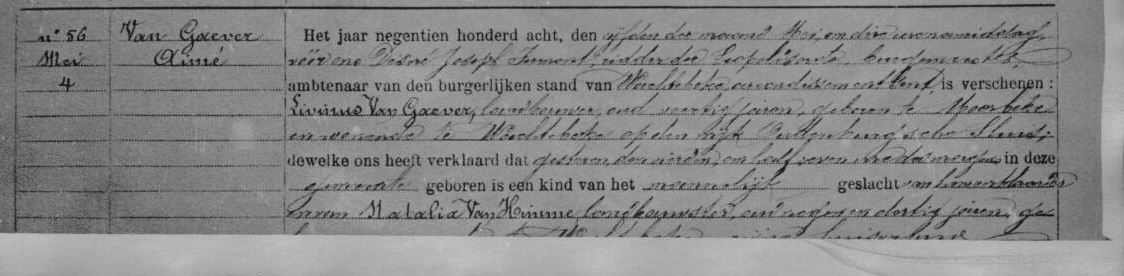 n° 56
Mei
4
Van Gaever
Aimé
Het jaar negentien honderd acht, den vijfden der maand Mei, om drie uren namiddag,
vóór ons Désiré Joseph ridder der Leopoldsorde, burgemeester,
ambtenaar van den burgerlijken stand van Wachtebeke, arrondissement Gent, is verschenen :
Livinus Van Gaever, landbouwer, oud veertig jaren, geboren te Moerbeke
en wonende te Wachtebeke op den wijk
dewelke ons heeft verklaard dat gisteren den vierden, om half zeven ure des morgens in deze
gemeente geboren is een kind van het mannelijk geslacht van hem verklaarder
Natalia Van Himme, landbouwster, oud negen en dertig jaren, ge